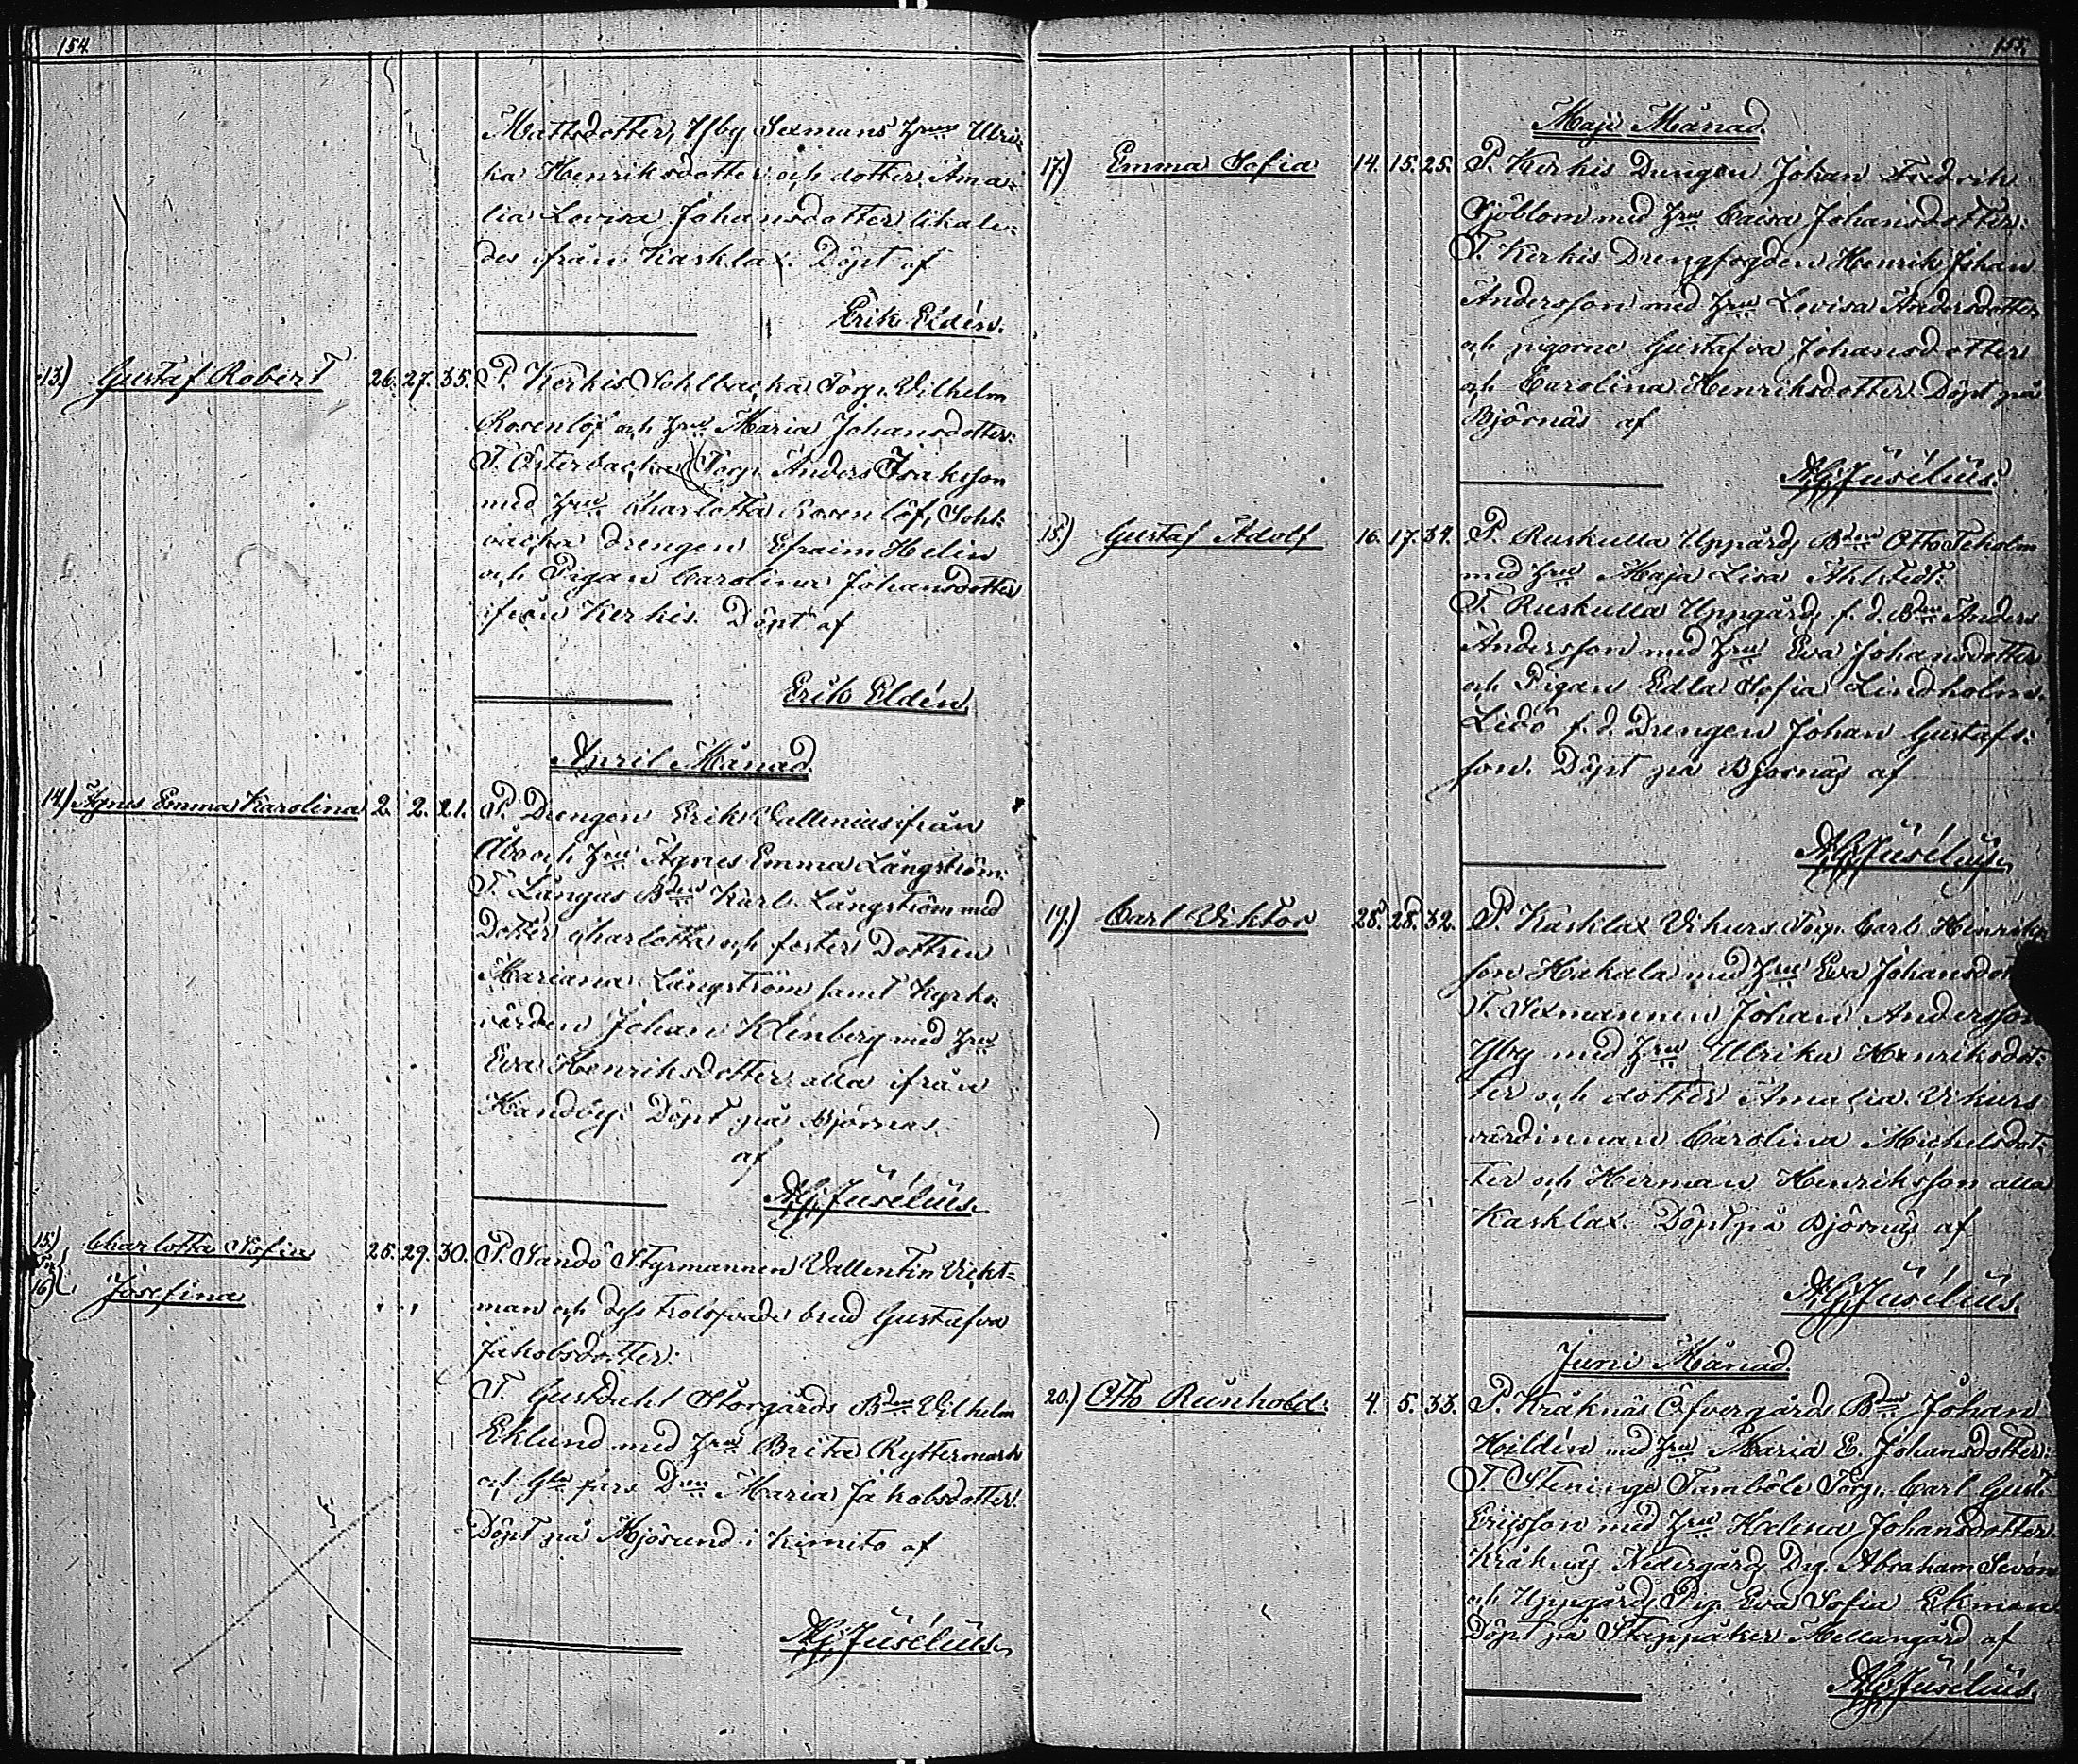 154.
Mattsdotter, Yfby Sexmans Hru Ulri-
ka Henriksdotter och dotter Ama-
lia Lovisa Johansdotter likale-
des ifrån Karklax. Döpt af
Erik Eldén.
13.) Gustaf Robert 26. 27. 35. P. Kerkis Sohlbacka Torp. Vilhelm
Rosenlöf och Hru Maria Johansdotter:
T. Österbacka Torp. Anders Isaksson
med Hru Charlotta Rosenlöf, Sohl-
backa drengen Efraim Helin
och Pigan Carolina Johansdotter
ifrån Kerkis. Döpt af
Erik Eldén.
April Månad.
14.) Agnes Emma Karolina 2. 2. 21. P. Drengen Erik Vallenius ifrån
Åbo och Hru Agnes Emma Långström:
T. Långas Bden Karl Långström med
Dotter Charlotta och foster Dottren
Mariana Långström samt Kyrko-
värden Johan Klinberg med Hru
Eva Henriksdotter alla ifrån
Kandby. Döpt på Björnäs
af
A.G. Jusélius.
15.) Charlotta Sofia 28. 29. 30. P. Sandö Styrmannen Vallentin Vickt-
16) Josefina " " man och dess trolofvade brud Gustafva
Jakobsdotter:
T. Gusdahl Storgårds Bden Vilhelm
Eklund med Hru Brita Ryttermark
och Gla fars Dren Maria Jakobsdotter.
Döpt på Mjösund i Kimito af
A.G. Jusélius.
155.
Maji Månad.
17.) Emma Sofia 14. 15. 25. P. Kerkis Drengen Johan Fredrik
Sjöblom med Hru Caisa Johansdotter:
T. Kerkis Drengfogden Henrik Johan
Andersson med Hru Lovisa Andersdotter
och pigorne Gustafva Johansdotter
och Carolina Henriksdotter. Döpt på
Björnäs af
A.G. Jusélius.
18.) Gustaf Adolf 16. 17. 34. P. Ruskulla Uppgårds Bden Otto Ticholm
med Hru Maja Lisa Ahlstedt:
T. Ruskulla Uppgårds f. d. Bden Anders
Andersson med Hru Eva Johansdotter
och Pigan Edla Sofia Lindholm.
Lidö f. d. Drengen Johan Gustafs-
son. Döpt på Björnäs af
A.G. Jusélius.
19.) Carl Viktor 28. 28. 32. P. Karklax Vikurs Torp. Carl Henriks-
son Hakala med Hru Eva Johansdot
T. Sexmannen Johan Andersson
Yfby med Hru Ulrika Henriksdot-
ter och dotter Amalia. Vikurs
värdinnan Carolina Michelsdot-
ter och Herman Henriksson alla
Karklax. Döpt på Björnäs af
A.G. Jusélius.
Juni Månad.
20.) Otto Reinhold. 4. 5. 33. P. Kråknäs Öfvergårds Bden Johan
Hildén med Hru Maria E. Johansdotter:
T. Steninge Tamböle Torp. Carl Gust.
Ericsson med Hru Helena Johansdotter.
Kråknäs Nedergårds Drg. Abraham Sevón
och Uppgårds Pig. Eva Sofia Ekman
Döpt på Skeppåker Mellangård af
A.G. Jusélius.